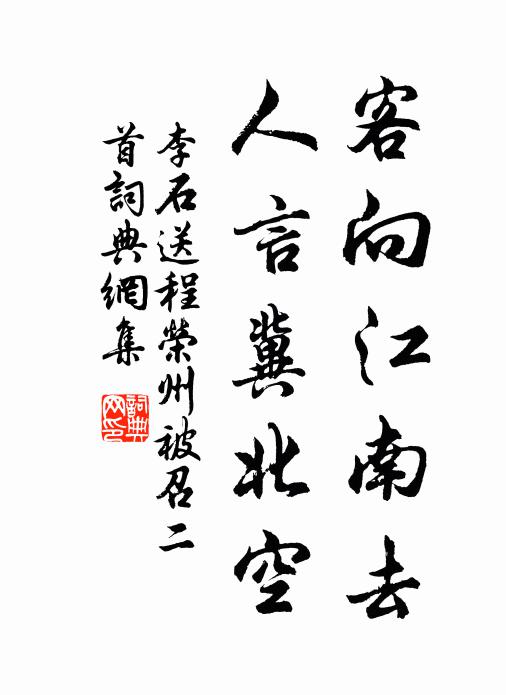 客向江南去
人言冀北空
李石送程榮州被召二
首詞典網集
詞典
网印